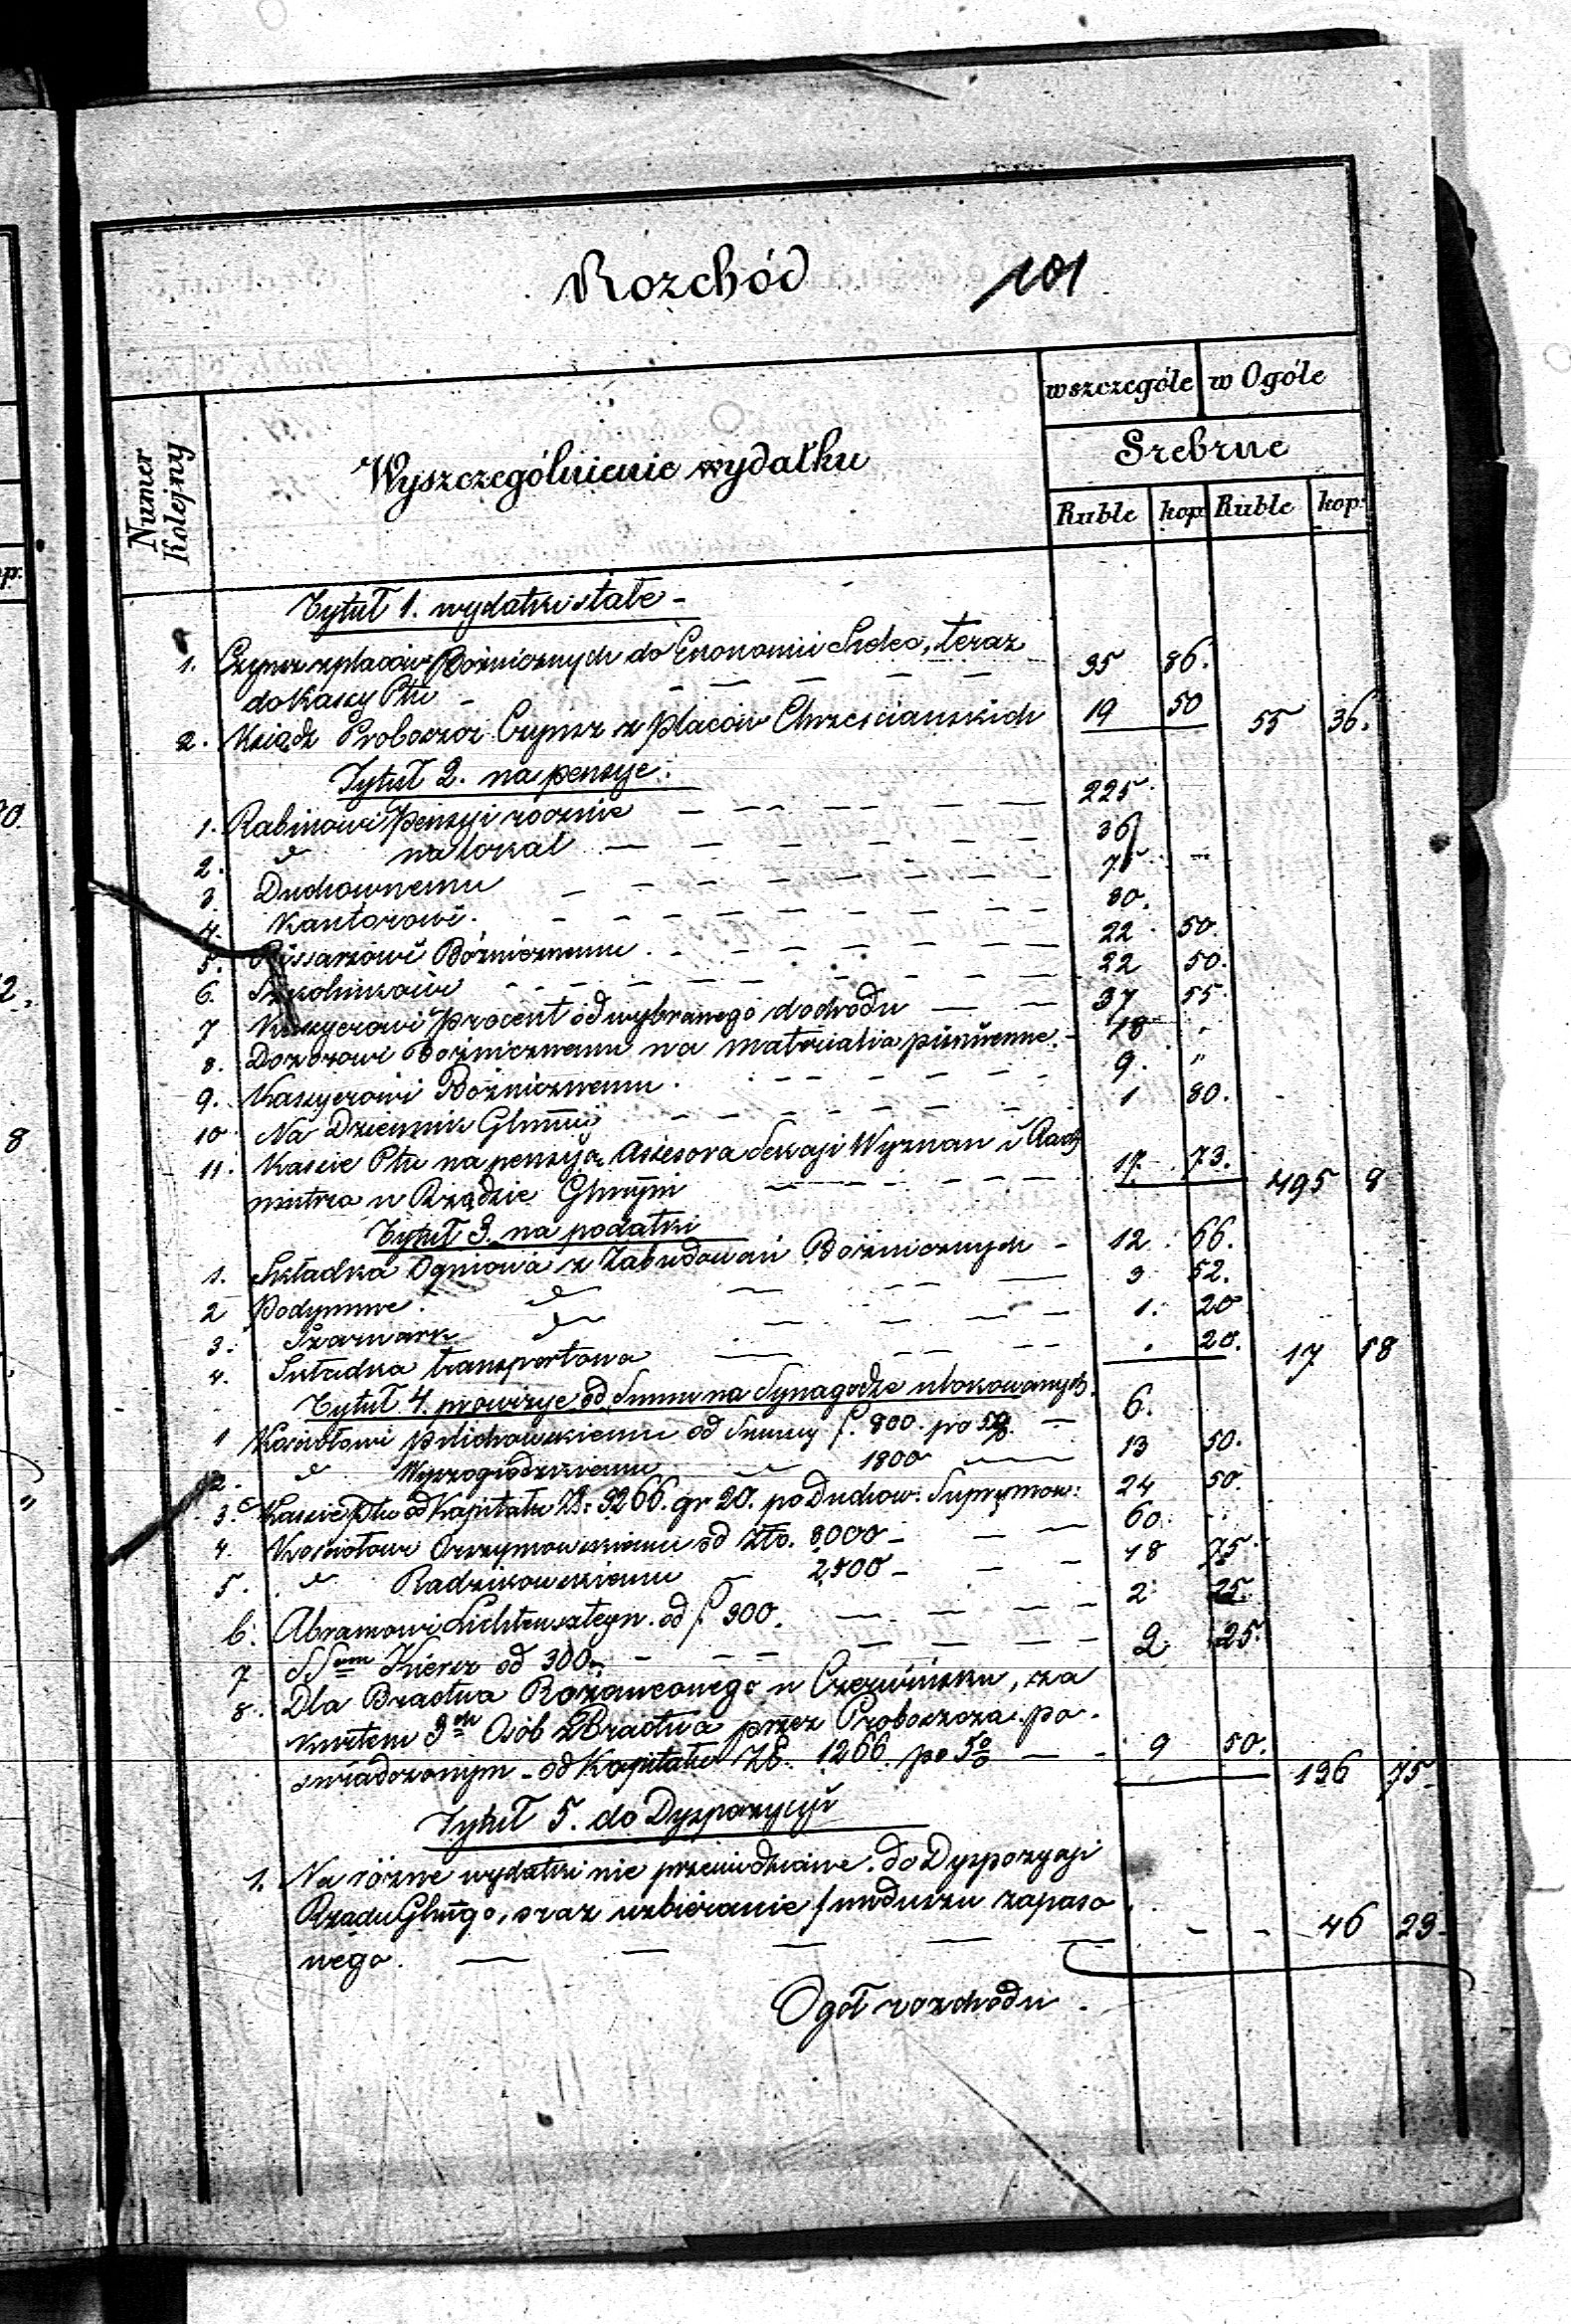 Rozchód 101
wszczególe w Ogóle
Numer Kolejny
Wyszczególnienie wydatku
Srebrne
Ruble kop. Ruble kop.
Tytuł 1. wydatki stałe -
1. Czynsz z placów Bóżnicznych do Ekonomii, teraz
do Kassy Ptu - 35 86.
2. Ksiądz Proboszcz Czynsz z placów Chrześciańskich 19 50 55 36.
Tytuł 2. na pensye.
1. Rabinowi pensyi rocznie 225.
2. " na lokal 36
3. Duchownemu 75 -
4. Kantorowi. 30.
5. Pissarzowi Bóżnicznemu. 22 50.
6. Szkolnikowi 22 50.
7 Kassyerowi procent od wybranego dochodu 37 55
8. Dozorowi Bóżnicznemu na materialia piśmienne. 18 -
9. Kassyerowi Bóżnicznemu. 9. "
10 Na Dziennik Głnÿ 1 80.
11. Kassie Ptu na pensyą Assesora Sekcyi Wyznan i Rach
mistrza w Rządzie Głnym 17. 73. 495 8
Tytuł 3. na podatki
1. Składka Ogniowa z Zabudowań Bóżnicznych - 12. 66.
2 Podymne. " 3 52.
3. Szarwark " 1. 20
4. Składka transportowa . 20. 17 58
Tytuł 4. prowizye od Summ na Synagodze ulokowanych.
1 Kościołowi od Summy f. 800. po 5%. 6.
2. " Wyszogrodzkiemu " 1800 13 50.
3. Kassie Ptu od Kapitału Zł. 3266. gr 20. po Duchow: Supprymow: 24 50.
4. Kościołowi Orszymowskiemu od Złp. 8,000 - 60.
5. " Radzikowskiemu - 2,500 - 18 75.
6. Abramowi Lichtensztejn. od f 300. 2 25.
7 od 300. 2 25.
8. Dla Bractwa Rożańcowego w Czerwińsku, za
kwitem 3ch Osób z Bractwa przez Proboszcza po-
świadczonym - od Kapitału Zł. 1266 po 5% 9 50. 136 75.
Tytuł 5. do Dyspozycyi
1. Na różne wydatki nie przewidziane. do Dyspozycyi
Rządu Głngo, oraz uzbieranie funduszu zapaso
wego. - - 46 23.
Ogół rozchodu.